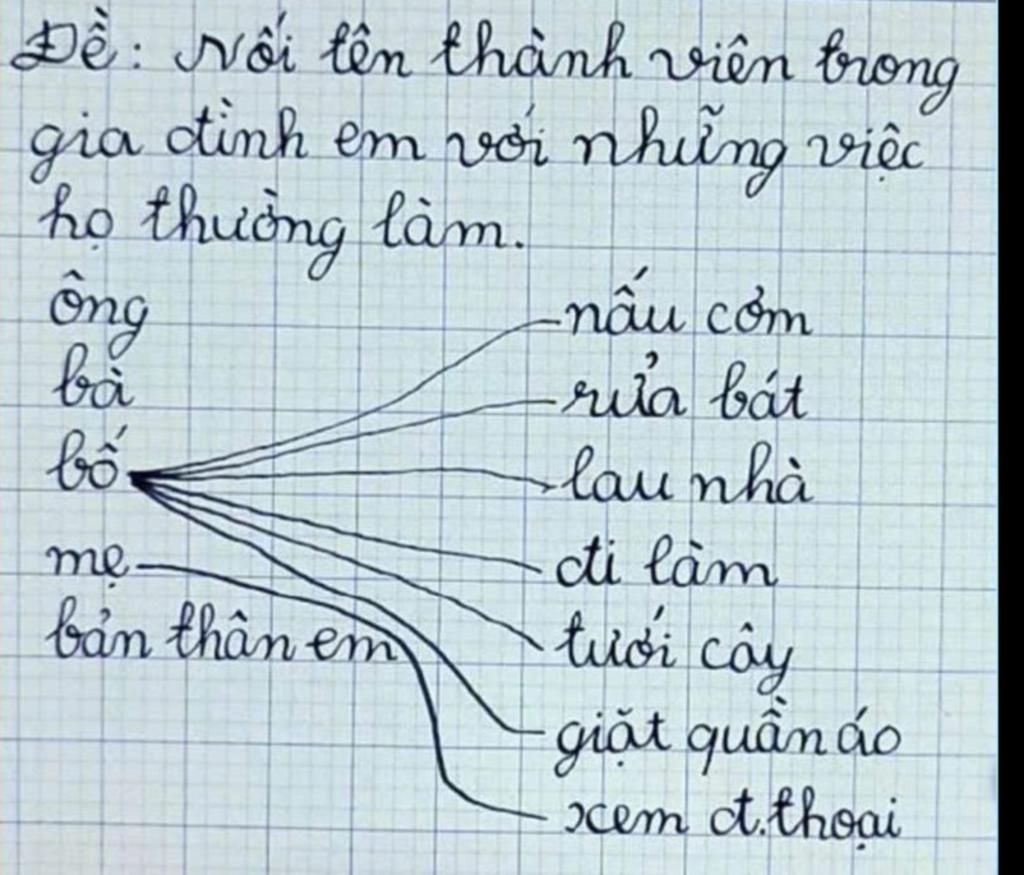 Đề: Nối tên thành viên trong
gia đình em với những việc
họ thường làm.
ông
bà
bố
mẹ
bản thân em
nấu cơm
rửa bát
lau nhà
đi làm
tưới cây
giặt quần áo
xem đ.thoại